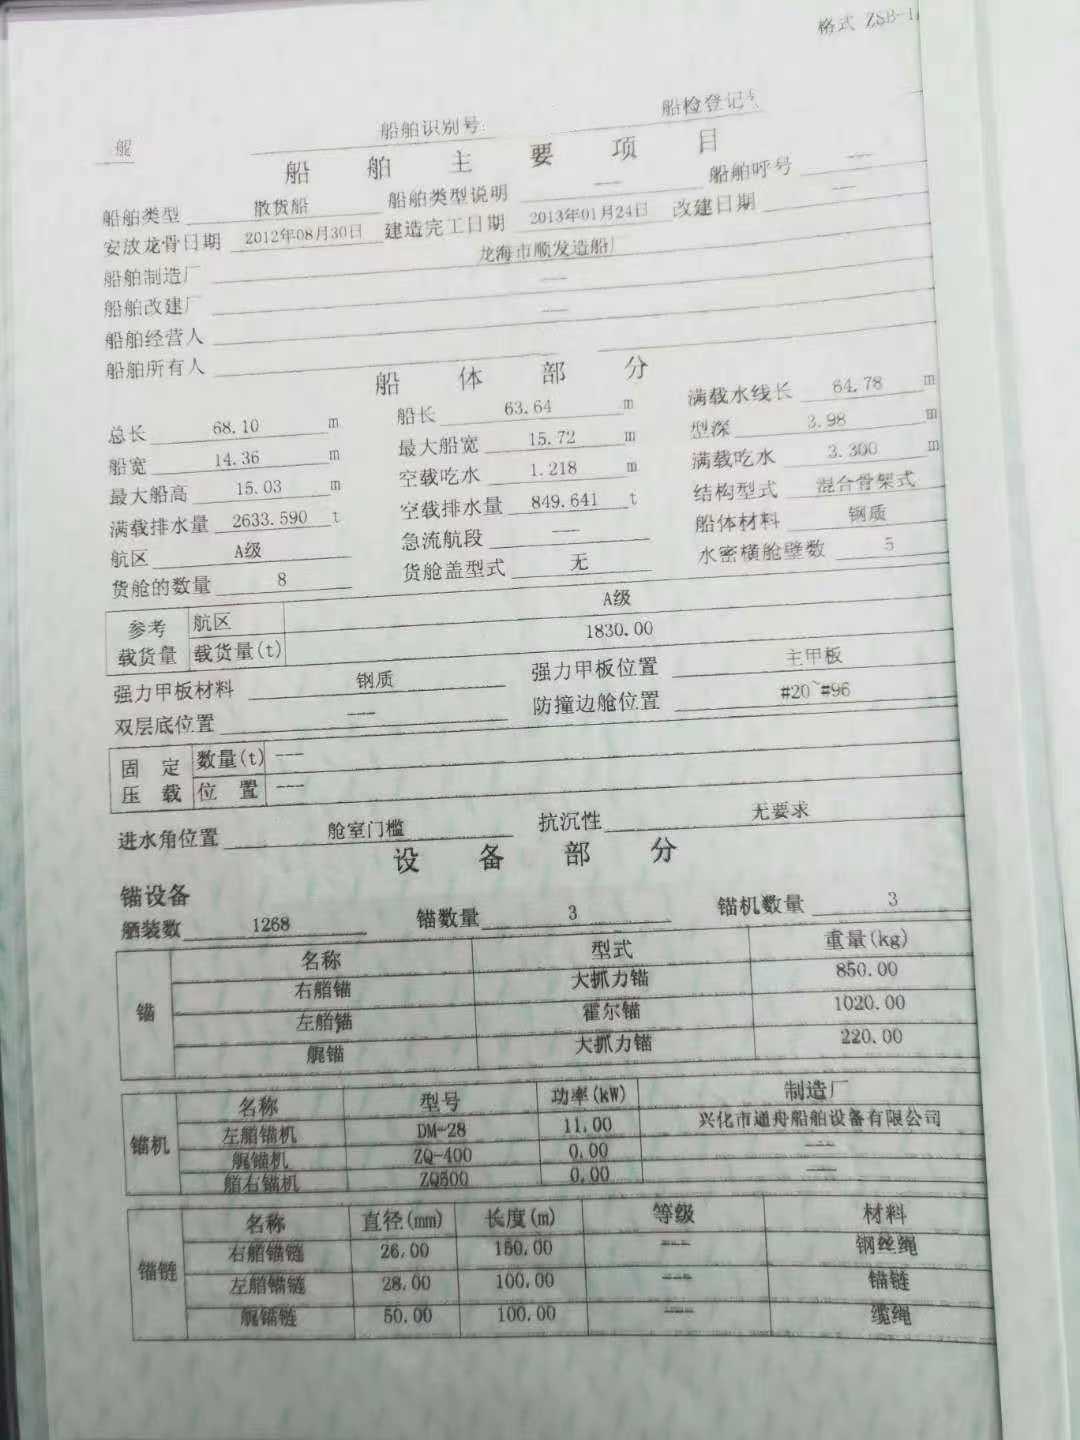 格式 ZSB-1
船舶识别号 船检登记号
船舶主要项目
船舶类型 散货船 船舶类型说明 --- 船舶呼号 ---
安放龙骨日期 2012年08月30日 建造完工日期 2013年01月24日 改建日期 ---
船舶制造厂 龙海市顺发造船厂
船舶改建厂 ---
船舶经营人 ---
船舶所有人
船体部分
总长 68.10 m 船长 63.64 m 满载水线长 64.78 m
船宽 14.36 m 最大船宽 15.72 m 型深 3.98 m
最大船高 15.03 m 空载吃水 1.218 m 满载吃水 3.300 m
满载排水量 2633.590 t 空载排水量 849.641 t 结构型式 混合骨架式
航区 A级 急流航段 --- 船体材料 钢质
货舱的数量 8 货舱盖型式 无 水密横舱壁数 5
参考载货量 航区 A级
载货量(t) 1830.00
强力甲板材料 钢质 强力甲板位置 主甲板
双层底位置 --- 防撞边舱位置 #20~#96
固定压载 数量(t) ---
位置 ---
进水角位置 舱室门槛 抗沉性 无要求
设备部分
锚设备
舾装数 1268 锚数量 3 锚机数量 3
锚 名称 型式 重量(kg)
右艏锚 大抓力锚 850.00
左艏锚 霍尔锚 1020.00
艉锚 大抓力锚 220.00
锚机 名称 型号 功率(kW) 制造厂
左艏锚机 DM-28 11.00 兴化市通舟船舶设备有限公司
艉锚机 ZQ-400 0.00 ---
艏右锚机 ZQ500 0.00 ---
锚链 名称 直径(mm) 长度(m) 等级 材料
右艏锚链 26.00 150.00 --- 钢丝绳
左艏锚链 28.00 100.00 --- 锚链
艉锚链 50.00 100.00 --- 缆绳